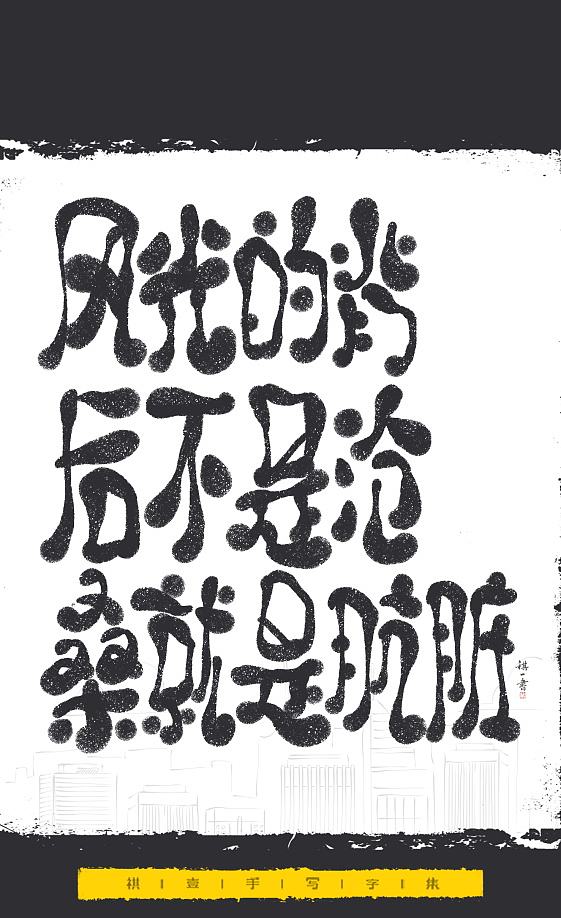 风光的背
后不是沧
桑就是肮脏
棋一书
祺|壹|手|写|字|集